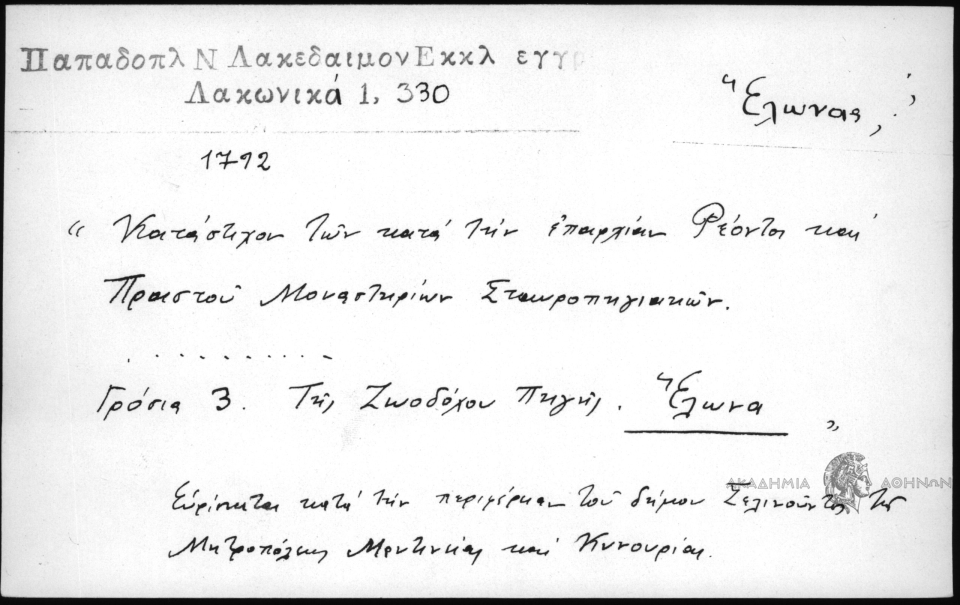 Παπαδοπλ Ν Λακεδαιμον Εκκλ εγγρ
Λακωνικά 1, 330
Ἕλωνας,
1792
“ Κατάστιχον τῶν κατά τήν ἐπαρχίαν Ρέοντος καί
Πραστοῦ Μοναστηρίων Σταυροπηγιακῶν.
. . . . . . . . . . .
Γρόσια 3. Τῆς Ζωοδόχου Πηγῆς. Ἕλωνα „
ΑΚΑΔΗΜΙΑ ΑΘΗΝΩΝ
Εὑρίσκεται κατά τήν περιφέρειαν τοῦ δήμου Σελινοῦντος τῆς
Μητροπόλεως Μαντινείας καί Κυνουρίας.